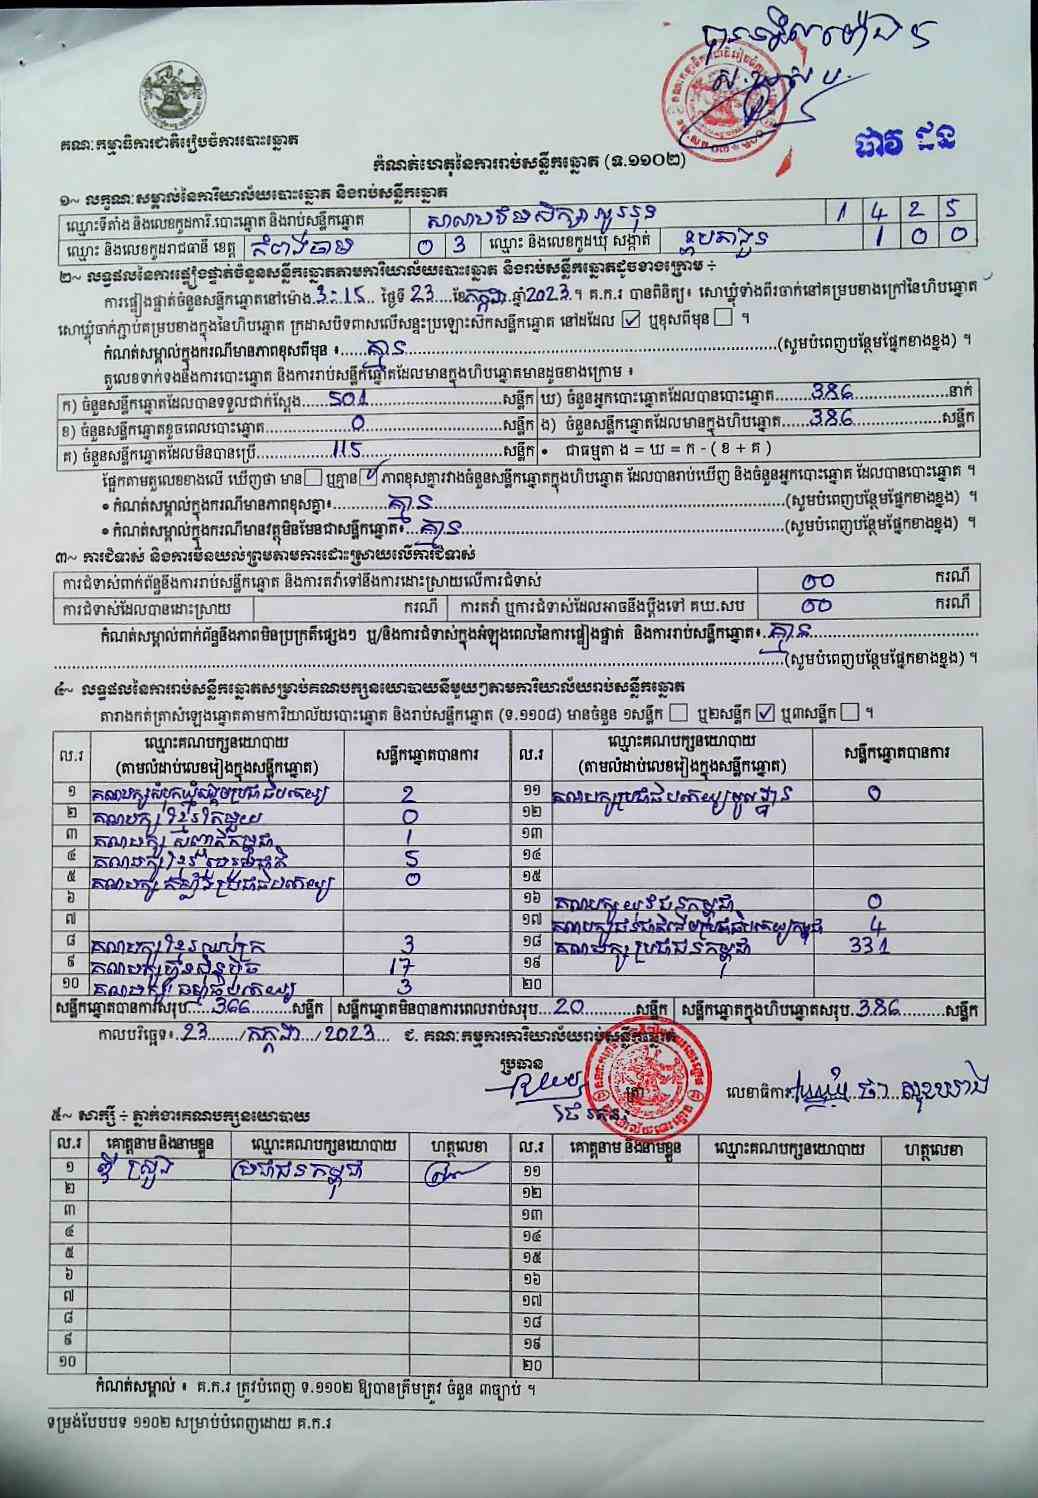 គណៈកម្មាធិការជាតិរៀបចំការបោះឆ្នោត
កំណត់ហេតុនៃការរាប់សន្លឹកឆ្នោត (ទ.១១០២)
១~ លក្ខណៈសម្គាល់នៃការិយាល័យបោះឆ្នោត និងរាប់សន្លឹកឆ្នោត
ឈ្មោះទីតាំង និងលេខកូដការិ.បោះឆ្នោត និងរាប់សន្លឹកឆ្នោត 1 4 2 5
ឈ្មោះ និងលេខកូដរាជធានី ខេត្ត កំពង់ចាម 0 3 ឈ្មោះ និងលេខកូដឃុំ សង្កាត់ 1 0 0
២~ លទ្ធផលនៃការផ្ទៀងផ្ទាត់ចំនួនសន្លឹកឆ្នោតតាមការិយាល័យបោះឆ្នោត និងរាប់សន្លឹកឆ្នោតដូចខាងក្រោម ÷
ការផ្ទៀងផ្ទាត់ចំនួនសន្លឹកឆ្នោតនៅម៉ោង 3:15 ថ្ងៃទី 23 ខែ កក្កដា ឆ្នាំ 2023 ។ គ.ក.រ បានពិនិត្យ៖ សោឃ្លុំទាំងពីរចាក់នៅគម្របខាងក្រៅនៃហិបឆ្នោត
សោឃ្លុំចាក់ភ្ជាប់គម្របខាងក្នុងនៃហិបឆ្នោត ក្រដាសបិទពាសលើសន្ទះប្រឡោះសិកសន្លឹកឆ្នោត នៅដដែល ☑ ឬខុសពីមុន ☐ ។
កំណត់សម្គាល់ក្នុងករណីមានភាពខុសពីមុន ៖ គ្មាន (សូមបំពេញបន្ថែមផ្នែកខាងខ្នង) ។
តួលេខទាក់ទងនឹងការបោះឆ្នោត និងការរាប់សន្លឹកឆ្នោតដែលមានក្នុងហិបឆ្នោតមានដូចខាងក្រោម ៖
ក) ចំនួនសន្លឹកឆ្នោតដែលបានទទួលជាក់ស្តែង 501 សន្លឹក ឃ) ចំនួនអ្នកបោះឆ្នោតដែលបានបោះឆ្នោត 386 នាក់
ខ) ចំនួនសន្លឹកឆ្នោតខូចពេលបោះឆ្នោត 0 សន្លឹក ង) ចំនួនសន្លឹកឆ្នោតដែលមានក្នុងហិបឆ្នោត 386 សន្លឹក
គ) ចំនួនសន្លឹកឆ្នោតដែលមិនបានប្រើ 115 សន្លឹក • ជាធម្មតា ង = ឃ = ក - ( ខ + គ )
ផ្អែកតាមតួលេខខាងលើ ឃើញថា មាន ☐ ឬគ្មាន ☑ ភាពខុសគ្នារវាងចំនួនសន្លឹកឆ្នោតក្នុងហិបឆ្នោត ដែលបានរាប់ឃើញ និងចំនួនអ្នកបោះឆ្នោត ដែលបានបោះឆ្នោត ។
• កំណត់សម្គាល់ក្នុងករណីមានភាពខុសគ្នា៖ គ្មាន (សូមបំពេញបន្ថែមផ្នែកខាងខ្នង) ។
• កំណត់សម្គាល់ក្នុងករណីមានវត្ថុមិនមែនជាសន្លឹកឆ្នោត៖ គ្មាន (សូមបំពេញបន្ថែមផ្នែកខាងខ្នង) ។
៣~ ការជំទាស់ និងការមិនយល់ព្រមតាមការដោះស្រាយលើការជំទាស់
ការជំទាស់ពាក់ព័ន្ធនឹងការរាប់សន្លឹកឆ្នោត និងការតវ៉ាទៅនឹងការដោះស្រាយលើការជំទាស់ 00 ករណី
ការជំទាស់ដែលបានដោះស្រាយ ករណី ការតវ៉ា ឬការជំទាស់ដែលអាចនឹងប្តឹងទៅ គឃ.សប 00 ករណី
កំណត់សម្គាល់ពាក់ព័ន្ធនឹងភាពមិនប្រក្រតីផ្សេងៗ ឬ/និងការជំទាស់ក្នុងអំឡុងពេលនៃការផ្ទៀងផ្ទាត់ និងការរាប់សន្លឹកឆ្នោត៖ គ្មាន
(សូមបំពេញបន្ថែមផ្នែកខាងខ្នង) ។
៤~ លទ្ធផលនៃការរាប់សន្លឹកឆ្នោតសម្រាប់គណបក្សនយោបាយនីមួយៗតាមការិយាល័យរាប់សន្លឹកឆ្នោត
តារាងកត់ត្រាសំឡេងឆ្នោតតាមការិយាល័យបោះឆ្នោត និងរាប់សន្លឹកឆ្នោត (ទ.១១០៨) មានចំនួន ១សន្លឹក ☐ ឬ២សន្លឹក ☑ ឬ៣សន្លឹក ☐ ។
ល.រ ឈ្មោះគណបក្សនយោបាយ (តាមលំដាប់លេខរៀងក្នុងសន្លឹកឆ្នោត) សន្លឹកឆ្នោតបានការ ល.រ ឈ្មោះគណបក្សនយោបាយ (តាមលំដាប់លេខរៀងក្នុងសន្លឹកឆ្នោត) សន្លឹកឆ្នោតបានការ
១ គណបក្សសំបុកឃ្មុំសង្គមប្រជាធិបតេយ្យ 2 ១១ គណបក្សប្រជាធិបតេយ្យមូលដ្ឋាន 0
២ គណបក្សខ្មែរ 0 ១២
៣ គណបក្ស សញ្ជាតិកម្ពុជា 1 ១៣
៤ គណបក្សខ្មែរ 5 ១៤
៥ គណបក្ស កម្លាំងប្រជាធិបតេយ្យ 0 ១៥
៦ ១៦ គណបក្ស យុវជនកម្ពុជា 0
៧ ១៧ គណបក្សជនជាតិដើមប្រជាធិបតេយ្យកម្ពុជា 4
៨ គណបក្សខ្មែរឈប់ក្រ 3 ១៨ គណបក្ស ប្រជាជនកម្ពុជា 331
៩ គណបក្សហ៊្វុនស៊ិនប៉ិច 17 ១៩
១០ គណបក្ស ធម្មាធិបតេយ្យ 3 ២០
សន្លឹកឆ្នោតបានការសរុប 366 សន្លឹក សន្លឹកឆ្នោតមិនបានការពេលរាប់សរុប 20 សន្លឹក សន្លឹកឆ្នោតក្នុងហិបឆ្នោតសរុប 386 សន្លឹក
កាលបរិច្ឆេទ៖ 23 / កក្កដា / 2023 ជ. គណៈកម្មការការិយាល័យរាប់សន្លឹកឆ្នោត
ប្រធាន
ត្រា លេខាធិការ
៥~ សាក្សី ÷ ភ្នាក់ងារគណបក្សនយោបាយ
ល.រ គោត្តនាម និងនាមខ្លួន ឈ្មោះគណបក្សនយោបាយ ហត្ថលេខា ល.រ គោត្តនាម និងនាមខ្លួន ឈ្មោះគណបក្សនយោបាយ ហត្ថលេខា
១ ប្រជាជនកម្ពុជា ១១
២ ១២
៣ ១៣
៤ ១៤
៥ ១៥
៦ ១៦
៧ ១៧
៨ ១៨
៩ ១៩
១០ ២០
កំណត់សម្គាល់ ៖ គ.ក.រ ត្រូវបំពេញ ទ.១១០២ ឱ្យបានត្រឹមត្រូវ ចំនួន ៣ច្បាប់ ។
ទម្រង់បែបបទ ១១០២ សម្រាប់បំពេញដោយ គ.ក.រ